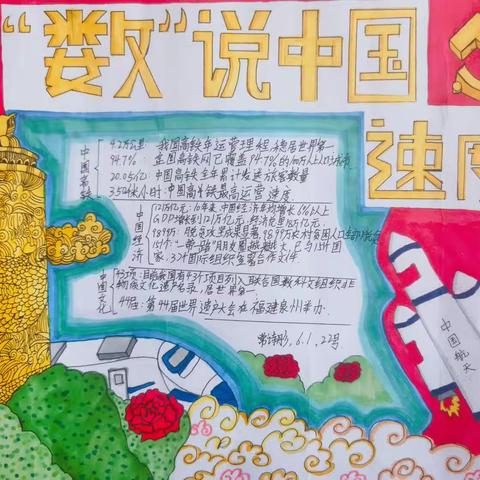 “数”说中国
速度
中国高铁
4.2万公里：我国高铁年运营里程，稳居世界第一
94.7%：全国高铁网已覆盖94.7%的100万人以上城市
20.05亿：中国高铁全年累计发送旅客数量
350千米/小时：中国高铁最高运营速度
中国经济
121万亿元：10年来，中国经济年均增长6%以上
GDP增长到121万亿元，经济
9899万：脱贫攻坚战果显著，9899万农村贫困人口全部脱贫
151个：“一带一路”朋友圈越来越大，已与151个国
家、32个国际组织签署合作文件
中国文化
43项：目前我国有43个项目列入联合国教科文组织非
物质文化遗产名录，居世界第一
44届：第44届世界遗产大会在福建泉州举办
6.1，22号
中国航天